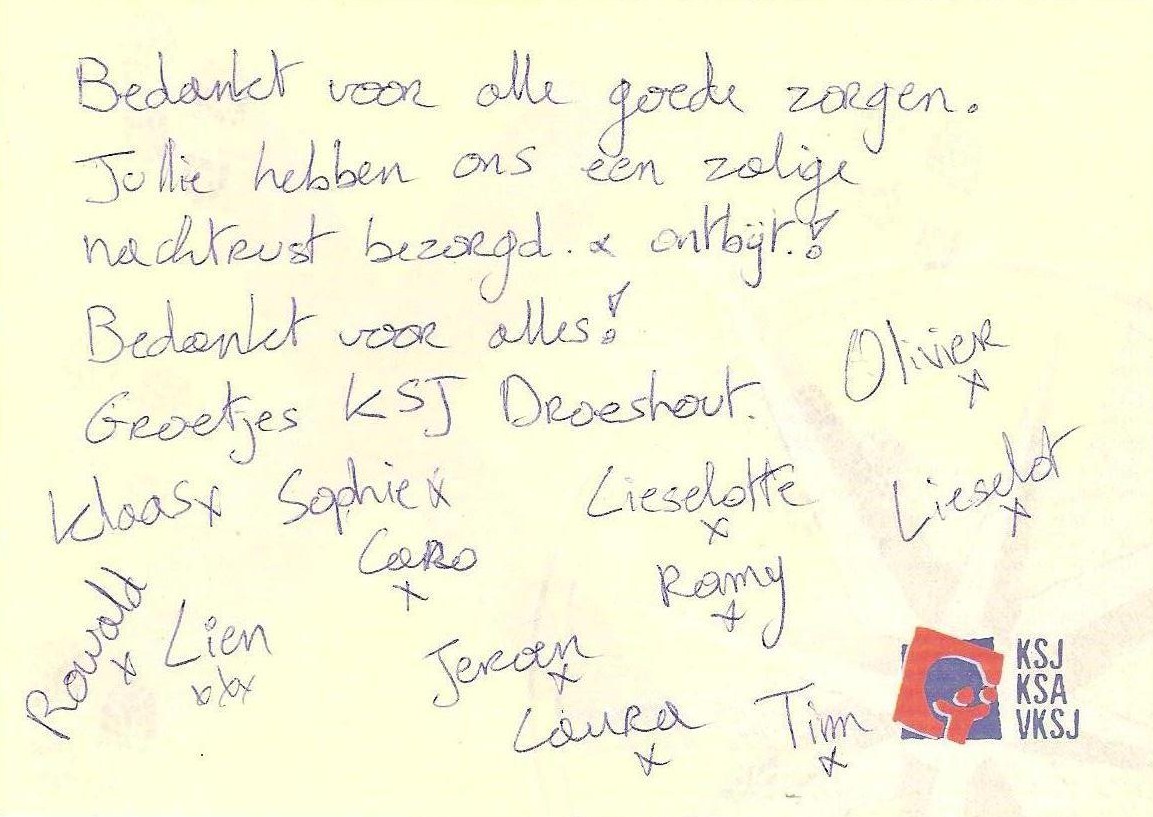 Bedankt voor alle goede zorgen.
Jullie hebben ons een zalige
nachtrust bezorgd. & ontbijt.!
Bedankt voor alles!
Groetjes KSJ Droeshout.
Olivier x
Klaas x Sophie x Lieselotte x Lieselot x
Caro x Ramy x
Rowald x Lien
Jeroen x
Laura x Tim x
KSJ
KSA
VKSJ